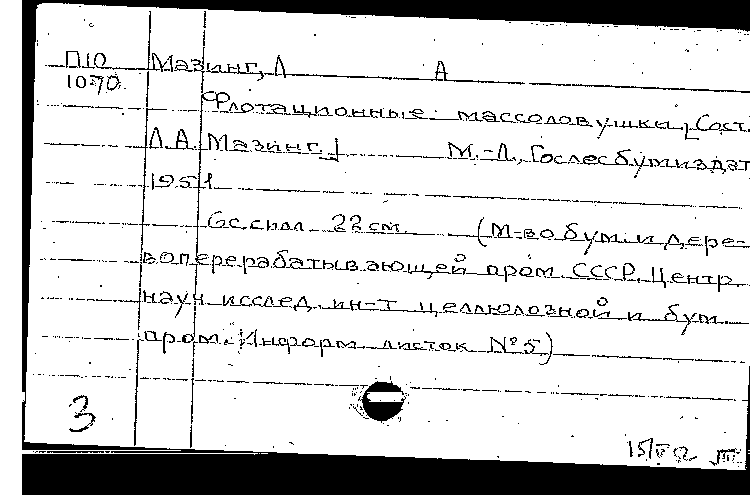 П10 Мазинг, Л А
1070
Флотационные массоловушки [Сост.
Л.А. Мазинг.] М.-Л., Гослесбумиздат
1951
6с.силл. 22см. (М-во бум. и дере-
воперерабатывающей пром. СССР. Центр.
науч. исслед. ин-т целлюлозной и бум.
пром. Информ. листок №5)
3
15/V 52